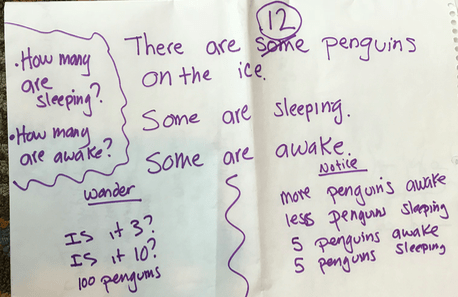 • How many are sleeping?
• How many are awake?
12
There are some penguins
on the ice.
Some are sleeping.
Some are awake.
Wonder
Is it 3?
Is it 10?
100 penguins
Notice
more penguins awake
less penguins sleeping
5 penguins awake
5 penguins sleeping